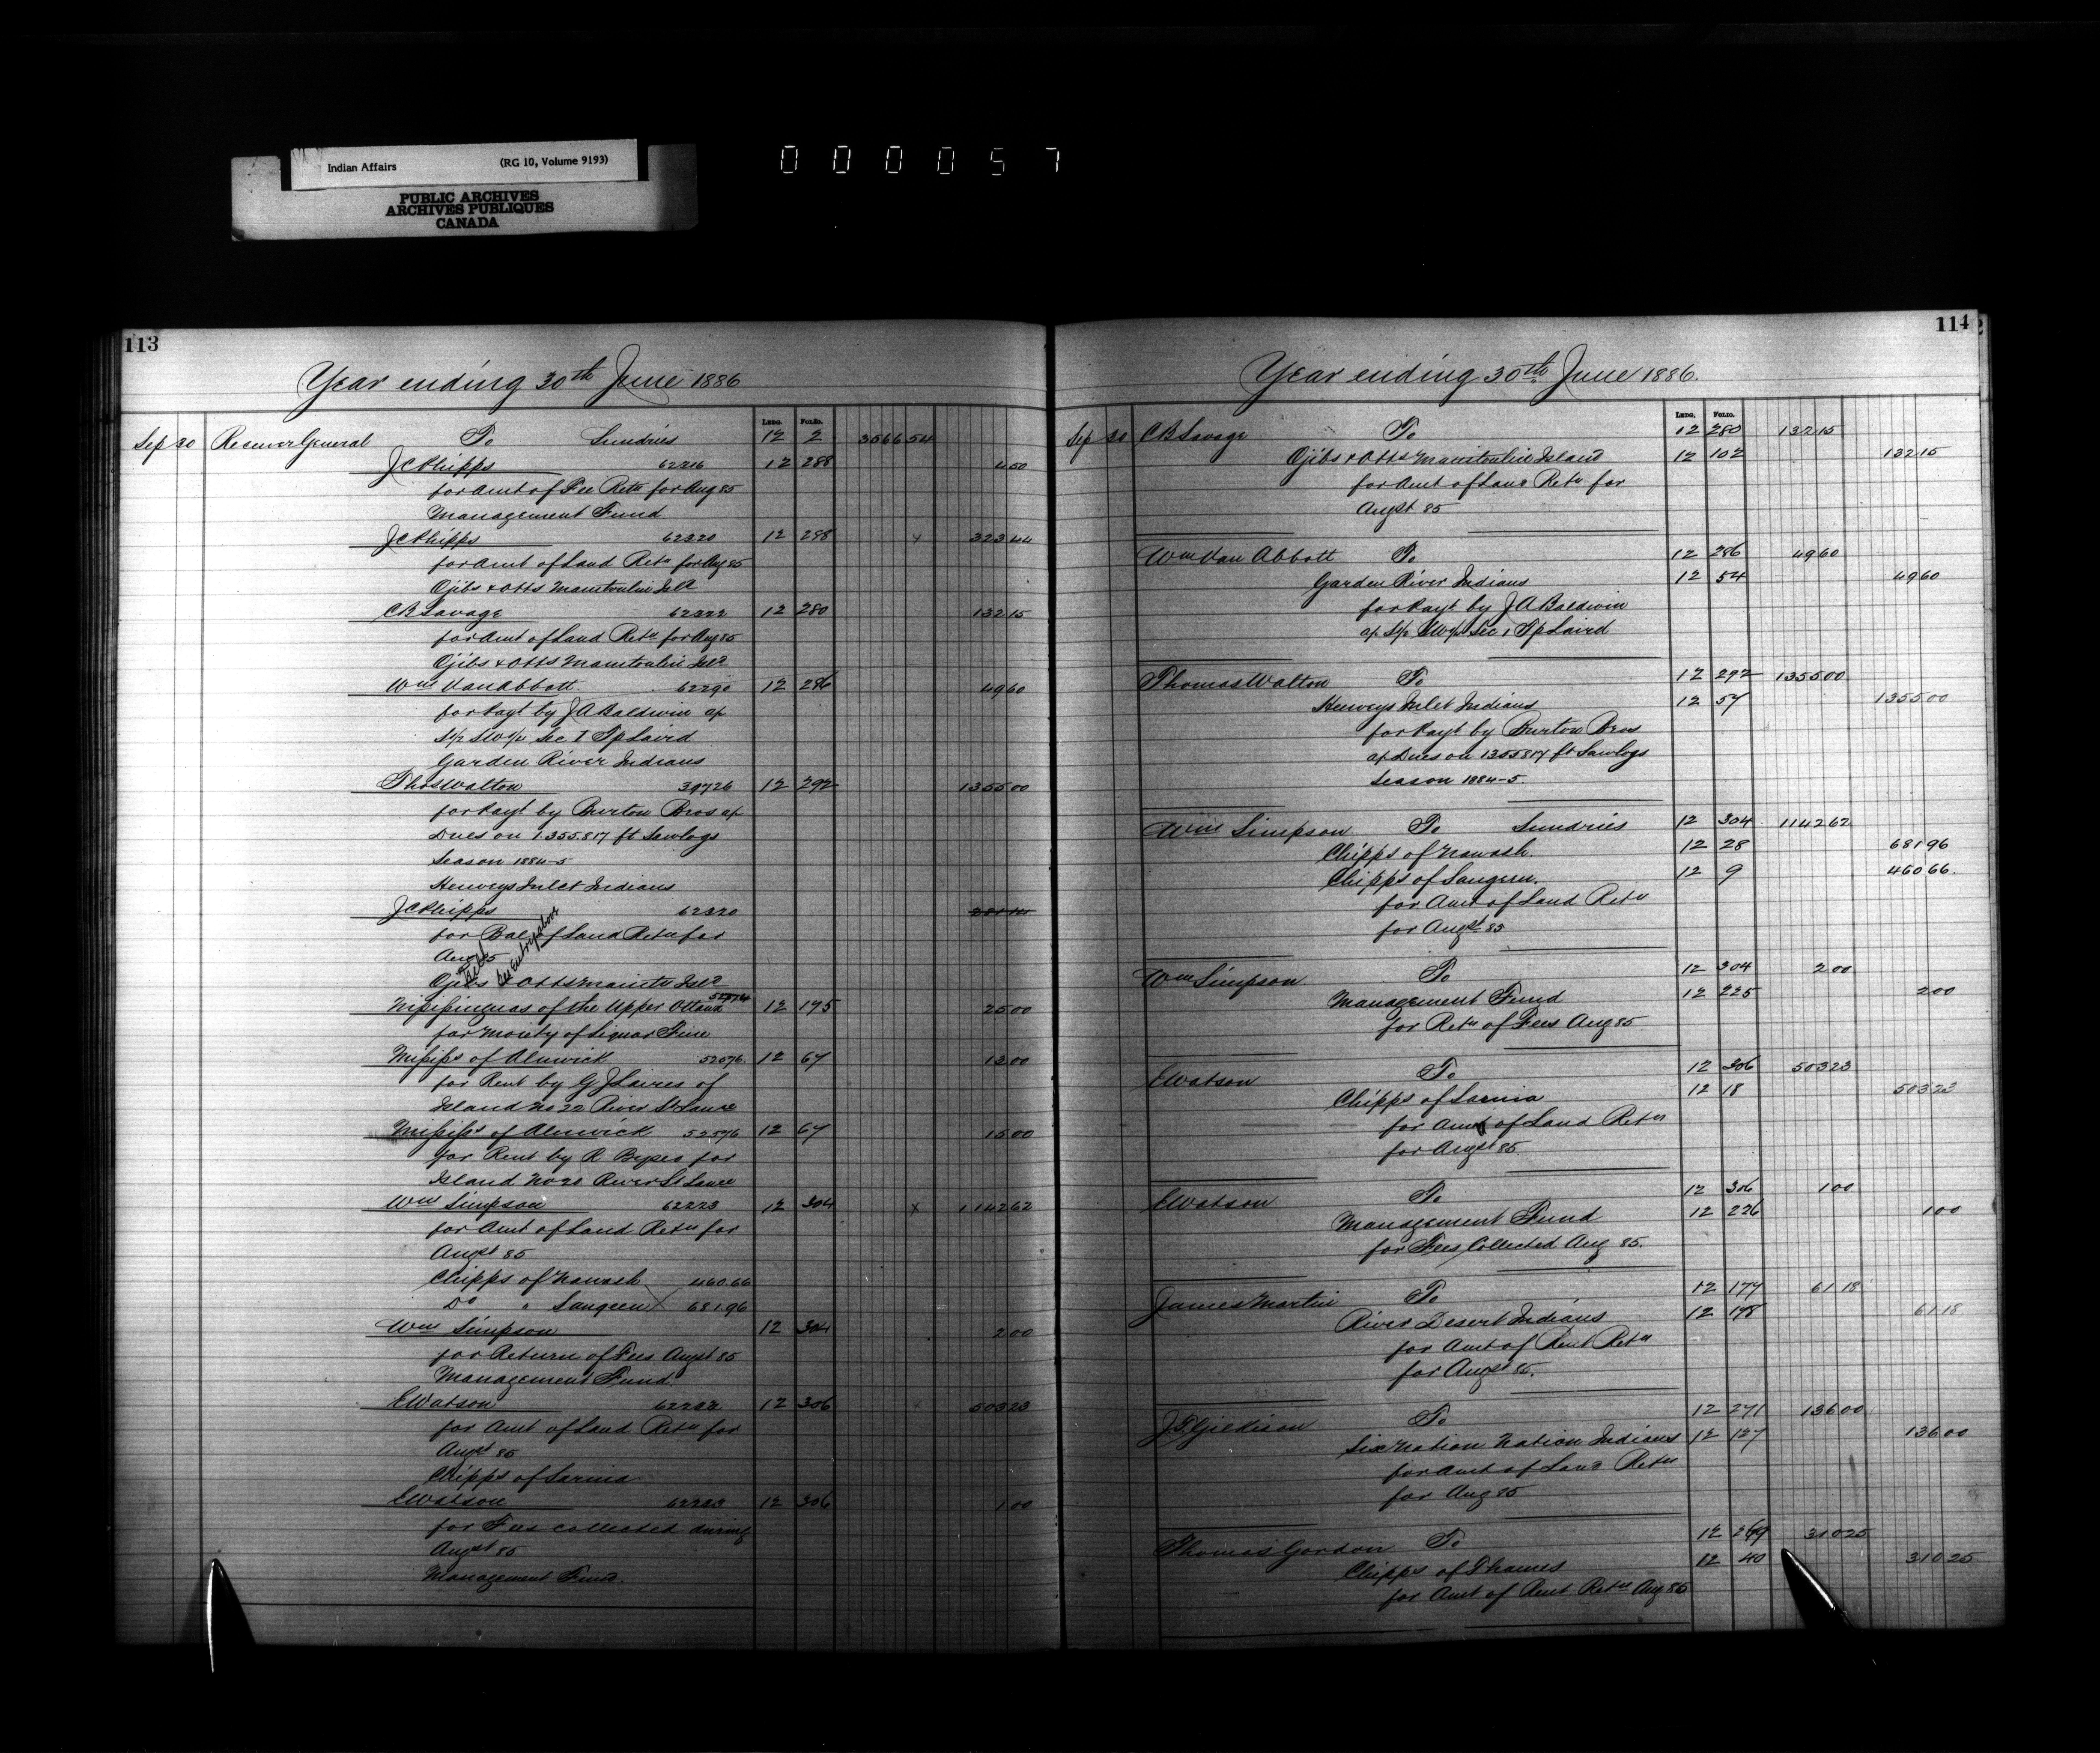 Indian Affairs (RG 10, Volume 9193)
PUBLIC ARCHIVES
ARCHIVES PUBLIQUES
CANADA
000057
113
Year ending 30th June 1886
LEDG. FOLIO.
Sep 30 Receiver General To Sundries 12 2 3566 54
J C Phipps 12 288 4 00
for Amt of Fee Retn for Aug 85
Management Fund
J C Phipps 62320 12 288 x 323 44
for Amt of Land Retn for Aug 85
Ojibs & Otts Manitoulin Isld
C B Savage 62322 12 280 132 15
for Amt of Land Retn for Aug 85
Ojibs & Otts Manitoulin Isld
Wm Van Abbott 62290 12 286 49 60
for Payt by J A Baldwin a/c
S1/2 SW1/4 Sec 1 Tp Laird
Garden River Indians
Thos Walton 39726 12 292 1355 00
for Payt by Burton Bros a/c
Dues on 1.355.817 ft Sawlogs
Season 1884-5
Henveys Inlet Indians
J C Phipps 62320
for Bal of Land Retn for
Aug 85
Ojibs & Otts Manito Isld
See Entry above
Nipissinguas of the Upper Ottawa 52574 12 175 25 00
for Moiety of Liquor Fine
Mississ of Alnwick 52576 12 67 12 00
for Rent by G J Laires of
Island No 22 River St Lawce
Mississ of Alnwick 52576 12 67 15 00
for Rent by R for
Island No 20 River St Lawce
Wm Simpson 62223 12 304 x 1142 62
for Amt of Land Retn for
Augst 85
Chipps of Nawash 460.66
Do " Saugeen 681.96
Wm Simpson 12 304 2 00
for Return of Fees Augst 85
Management Fund.
E Watson 62232 12 306 503 23
for Amt of Land Retn for
Augst 85
Chipps of Sarnia
E Watson 62233 12 306 1 00
for Fees collected during
Augst 85
Management Fund.
114
Year ending 30th June 1886.
LEDG. FOLIO.
Sep 30 C B Savage To 12 280 132 15
Ojibs & Otts Manitoulin Island 12 102 132 15
for Amt of Land Retn for
Augst 85
Wm Van Abbott To 12 286 49 60
Garden River Indians 12 54 49 60
for Payt by J A Baldwin
a/c S1/2 SW1/4 Sec 1 Tp Laird
Thomas Walton To 12 292 1355 00
Henveys Inlet Indians 12 57 1355 00
for Payt by Burton Bros
a/c Dues on 1355817 ft Sawlogs
Season 1884-5.
Wm Simpson To Sundries 12 304 1142 62
Chipps of Nawash. 12 28 681 96
Chipps of Saugeen. 12 9 460 66.
for Amt of Land Retn
for Augst 85
Wm Simpson To 12 304 2 00
Management Fund 12 225 2 00
for Retn of Fees Aug 85
E Watson To 12 306 503 23
Chipps of Sarnia 12 18 503 23
for Amt of Land Retn
for Augst 85
E Watson To 12 306 1 00
Management Fund 12 226 1 00
for Fees Collected Aug 85.
James Martin To 12 177 61 18
River Desert Indians 12 178 61 18
for Amt of Rent Retn
for Augst 85.
J T Gilkison To 12 271 136 00
Six Nation Nation Indians 12 127 136 00
for Amt of Land Retn
for Aug 85
Thomas Gordon To 12 269 310 25
Chipps of Thames 12 40 310 25
for Amt of Rent Retn Aug 85